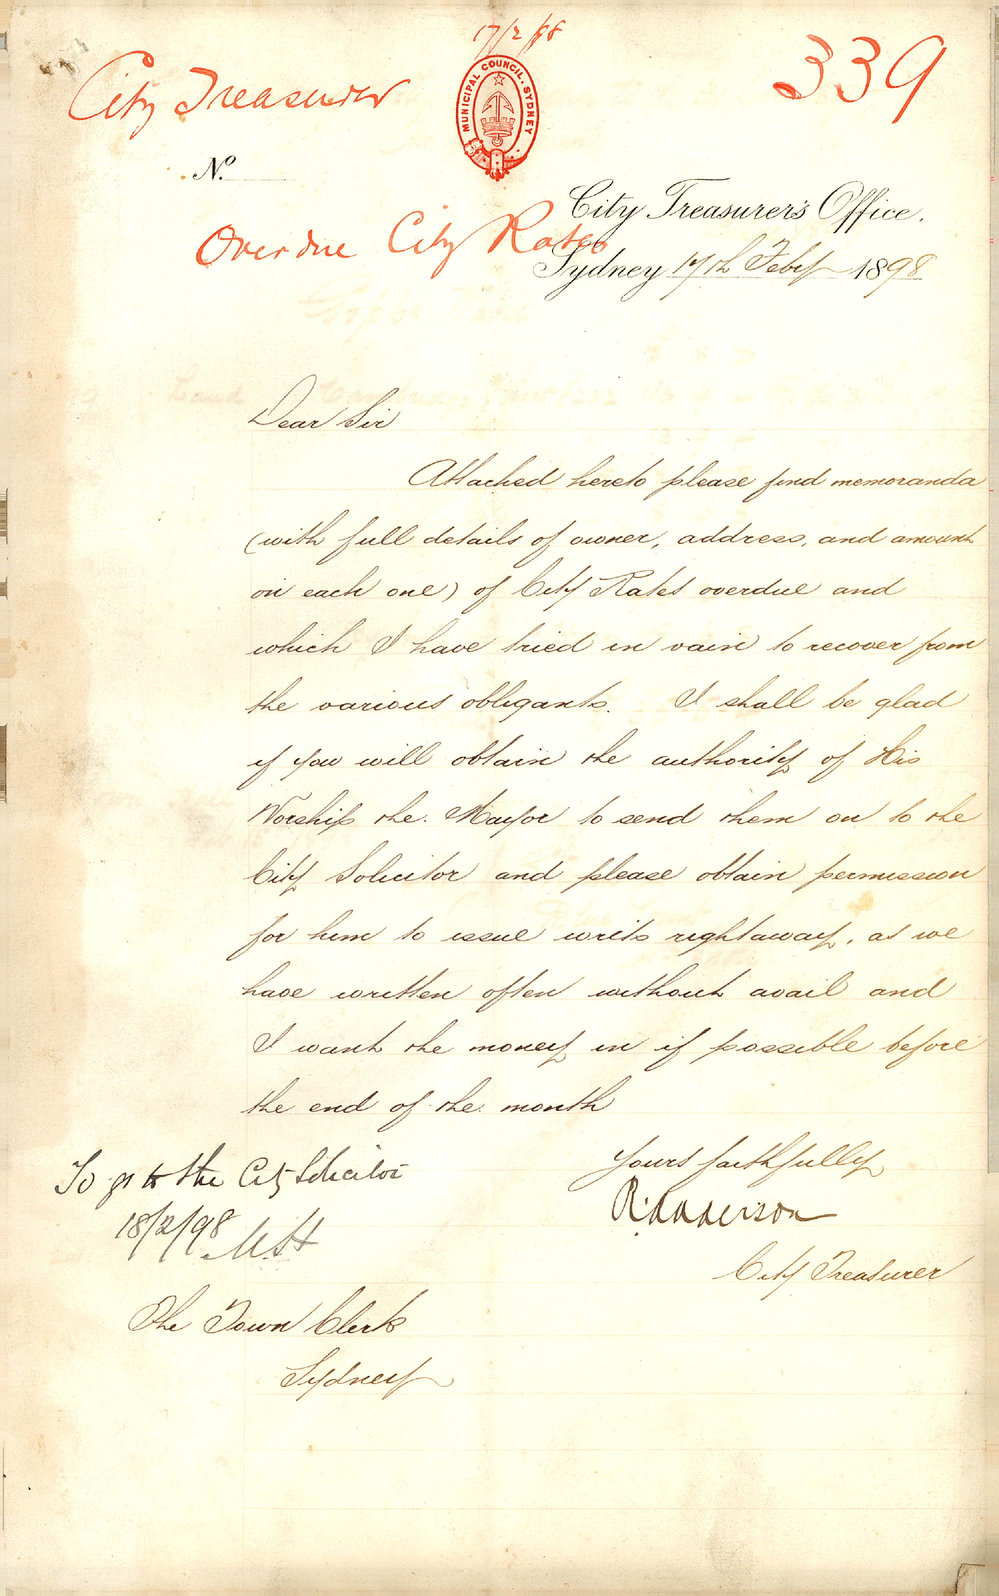 17/2/98
City Treasurer
339
MUNICIPAL COUNCIL. SYDNEY
No.
City Treasurer's Office.
Overdue City Rates
Sydney 17th Feby 1898
Dear Sir
Attached hereto please find memoranda
(with full details of owner, address, and amount
on each one) of City Rates overdue and
which I have tried in vain to recover from
the various obligants. I shall be glad
if you will obtain the authority of His
Worship the Mayor to send them on to the
City Solicitor and please obtain permission
for him to issue writs right away, as we
have written often without avail and
I want the money in if possible before
the end of the month
Yours faithfully
To go to the City Solicitor
R. Anderson
18/2/98
City Treasurer
The Town Clerk
Sydney